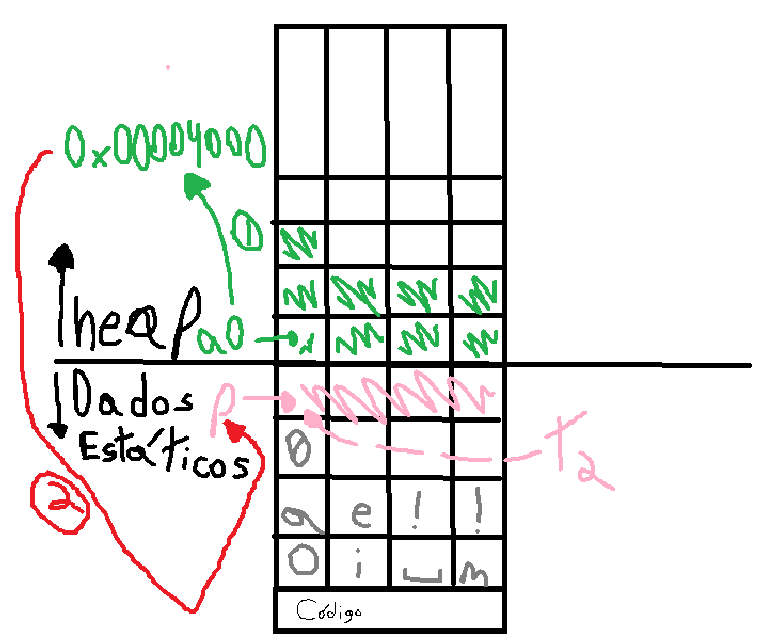 0x00004000
1
heap
a0
Dados
Estáticos
p
t2
2
0
g e ! !
O i ␣ m
Código